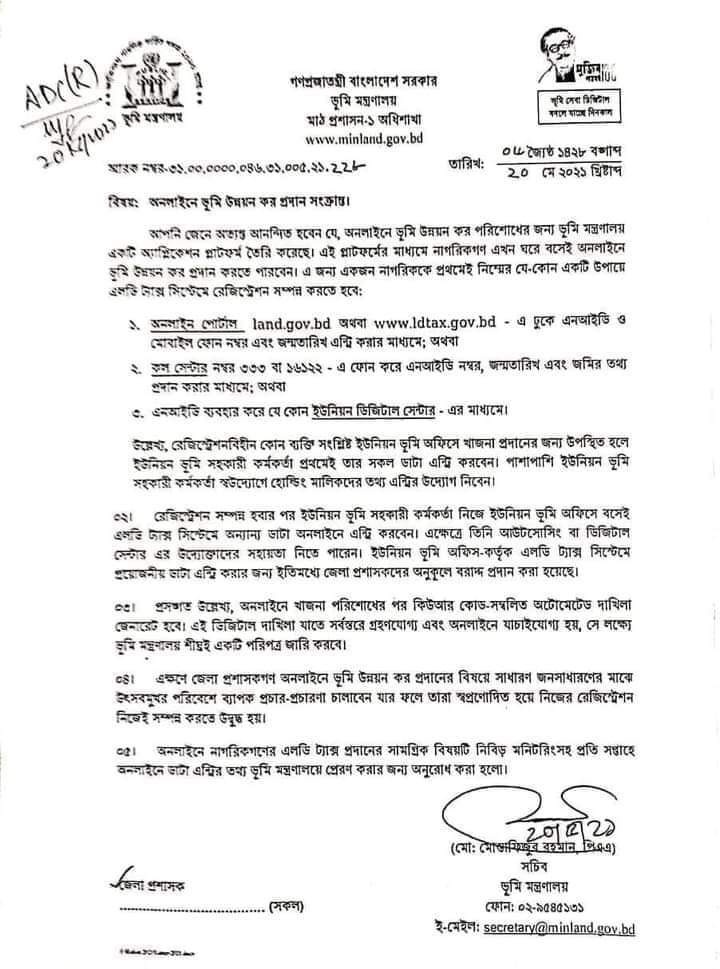 ADC(R)
ভূমি মন্ত্রণালয়
গণপ্রজাতন্ত্রী বাংলাদেশ সরকার
ভূমি মন্ত্রণালয়
মাঠ প্রশাসন-১ অধিশাখা
www.minland.gov.bd
ভূমি সেবা ডিজিটাল
বদলে যাচ্ছে দিনকাল
স্মারক নম্বর-৩১.০০.০০০০.০৪৬.৩১.০০৫.২১.২২৮
তারিখ: ০৬ জ্যৈষ্ঠ ১৪২৮ বঙ্গাব্দ
২০ মে ২০২১ খ্রিষ্টাব্দ
বিষয়: অনলাইনে ভূমি উন্নয়ন কর প্রদান সংক্রান্ত।
আপনি জেনে অত্যন্ত আনন্দিত হবেন যে, অনলাইনে ভূমি উন্নয়ন কর পরিশোধের জন্য ভূমি মন্ত্রণালয়
একটি অ্যাপ্লিকেশন প্লাটফর্ম তৈরি করেছে। এই প্লাটফর্মের মাধ্যমে নাগরিকগণ এখন ঘরে বসেই অনলাইনে
ভূমি উন্নয়ন কর প্রদান করতে পারবেন। এ জন্য একজন নাগরিককে প্রথমেই নিম্মের যে-কোন একটি উপায়ে
এলডি ট্যাক্স সিস্টেমে রেজিস্ট্রেশন সম্পন্ন করতে হবে:
১. অনলাইন পোর্টাল land.gov.bd অথবা www.ldtax.gov.bd - এ ঢুকে এনআইডি ও
মোবাইল ফোন নম্বর এবং জন্মতারিখ এন্ট্রি করার মাধ্যমে; অথবা
২. কল সেন্টার নম্বর ৩৩৩ বা ১৬১২২ - এ ফোন করে এনআইডি নম্বর, জন্মতারিখ এবং জমির তথ্য
প্রদান করার মাধ্যমে; অথবা
৩. এনআইডি ব্যবহার করে যে কোন ইউনিয়ন ডিজিটাল সেন্টার - এর মাধ্যমে।
উল্লেখ্য, রেজিস্ট্রেশনবিহীন কোন ব্যক্তি সংশ্লিষ্ট ইউনিয়ন ভূমি অফিসে খাজনা প্রদানের জন্য উপস্থিত হলে
ইউনিয়ন ভূমি সহকারী কর্মকর্তা প্রথমেই তার সকল ডাটা এন্ট্রি করবেন। পাশাপাশি ইউনিয়ন ভূমি
সহকারী কর্মকর্তা স্বউদ্যোগে হোল্ডিং মালিকদের তথ্য এন্ট্রির উদ্যোগ নিবেন।
০২। রেজিস্ট্রেশন সম্পন্ন হবার পর ইউনিয়ন ভূমি সহকারী কর্মকর্তা নিজে ইউনিয়ন ভূমি অফিসে বসেই
এলডি ট্যাক্স সিস্টেমে অন্যান্য ডাটা অনলাইনে এন্ট্রি করবেন। এক্ষেত্রে তিনি আউটসোসিং বা ডিজিটাল
সেন্টার এর উদ্যোক্তাদের সহায়তা নিতে পারেন। ইউনিয়ন ভূমি অফিস-কর্তৃক এলডি ট্যাক্স সিস্টেমে
প্রয়োজনীয় ডাটা এন্ট্রি করার জন্য ইতিমধ্যে জেলা প্রশাসকদের অনুকূলে বরাদ্দ প্রদান করা হয়েছে।
০৩। প্রসঙ্গত উল্লেখ্য, অনলাইনে খাজনা পরিশোধের পর কিউআর কোড-সম্বলিত অটোমেটেড দাখিলা
জেনারেট হবে। এই ডিজিটাল দাখিলা যাতে সর্বস্তরে গ্রহণযোগ্য এবং অনলাইনে যাচাইযোগ্য হয়, সে লক্ষ্যে
ভূমি মন্ত্রণালয় শীঘ্রই একটি পরিপত্র জারি করবে।
০৪। এক্ষণে জেলা প্রশাসকগণ অনলাইনে ভূমি উন্নয়ন কর প্রদানের বিষয়ে সাধারণ জনসাধারণের মাঝে
উৎসবমুখর পরিবেশে ব্যাপক প্রচার-প্রচারণা চালাবেন যার ফলে তারা স্বপ্রণোদিত হয়ে নিজের রেজিস্ট্রেশন
নিজেই সম্পন্ন করতে উদ্বুদ্ধ হয়।
০৫। অনলাইনে নাগরিকগণের এলডি ট্যাক্স প্রদানের সামগ্রিক বিষয়টি নিবিড় মনিটরিংসহ প্রতি সপ্তাহে
অনলাইনে ডাটা এন্ট্রির তথ্য ভূমি মন্ত্রণালয়ে প্রেরণ করার জন্য অনুরোধ করা হলো।
২০/৫/২১
(মো: মোস্তাফিজুর রহমান, পিএএ)
সচিব
ভূমি মন্ত্রণালয়
ফোন: ০২-৯৫৪৫১৩১
ই-মেইল: secretary@minland.gov.bd
জেলা প্রশাসক
.................................... (সকল)